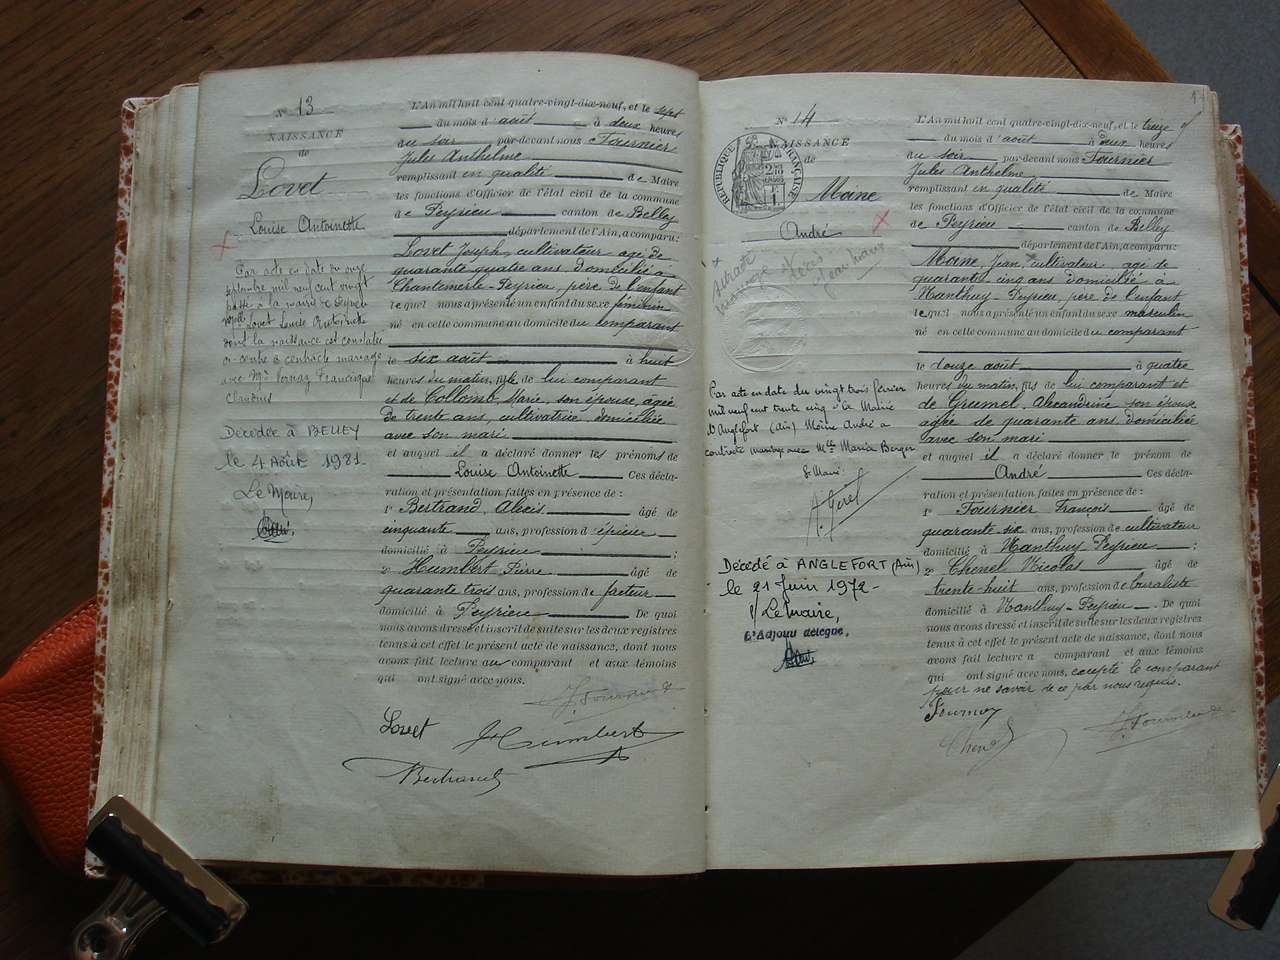 N° 13
NAISSANCE
de
Lovet
Louise Antoinette
Par acte en date du onze
septembre mil neuf cent vingt
à la mairie de
Lovet Louise Antoinette
dont la naissance est constatée
ci-contre a contracté mariage
avec Mr Francisque
Claudius
Décédée à BELLEY
le 4 Août 1981
Le Maire,
L'An mil huit cent quatre-vingt-dix-neuf, et le sept
du mois d'août à deux heures
du soir par-devant nous Fournier
Jules Anthelme
remplissant en qualité de Maire
les fonctions d'Officier de l'état civil de la commune
de Peyrieu canton de Belley
département de l'Ain, a comparu:
Lovet Joseph, cultivateur agé de
quarante quatre ans, domicilié à
Chantemerle-Peyrieu, père de l'enfant
lequel nous a présenté un enfant du sexe féminin
né en cette commune au domicile du comparant
le six août à huit
heures du matin, fille de lui comparant
et de Collomb, Marie, son épouse, agée
de trente ans, cultivatrice, domiciliée
avec son mari
et auquel il a déclaré donner les prénoms de
Louise Antoinette Ces décla-
ration et présentation faites en présence de:
1° Bertrand, Alexis âgé de
cinquante ans, profession d'épicier
domicilié à Peyrieu ;
2° Humbert Pierre âgé de
quarante trois ans, profession de facteur
domicilié à Peyrieu De quoi
nous avons dressé et inscrit de suite sur les deux registres
tenus à cet effet le présent acte de naissance, dont nous
avons fait lecture au comparant et aux témoins
qui ont signé avec nous.
J. Fournier
Lovet
Humbert
Bertrand
N° 14
NAISSANCE
de
RÉPUBLIQUE FRANÇAISE
Moine
André
extrait
mariage
Par acte en date du vingt trois février
mil neuf cent trente cinq à la Mairie
d'Anglefort (Ain) Moine André a
contracté mariage avec Mlle Maria Berger
Le Maire
Décédé à ANGLEFORT (Ain)
le 21 Juin 1972
P/ Le Maire,
L'Adjoint délégué,
L'An mil huit cent quatre-vingt-dix-neuf, et le treize
du mois d'août à deux heures
du soir par-devant nous Fournier
Jules Anthelme
remplissant en qualité de Maire
les fonctions d'Officier de l'état civil de la commune
de Peyrieu canton de Belley
département de l'Ain, a comparu:
Moine, Jean, cultivateur agé de
quarante-cinq ans domicilié à
Nanthuy-Peyrieu, père de l'enfant
lequel nous a présenté un enfant du sexe masculin
né en cette commune au domicile du comparant
le douze août à quatre
heures du matin, fils de lui comparant et
de Grumel, Alexandrine son épouse
agée de quarante ans domiciliée
avec son mari
et auquel il a déclaré donner le prénom de
André Ces décla-
ration et présentation faites en présence de:
1° Fournier François âgé de
quarante six ans, profession de cultivateur
domicilié à Nanthuy Peyrieu ;
2° Chenel Nicolas âgé de
trente-huit ans, profession de buraliste
domicilié à Nanthuy-Peyrieu. De quoi
nous avons dressé et inscrit de suite sur les deux registres
tenus à cet effet le présent acte de naissance, dont nous
avons fait lecture a comparant et aux témoins
qui ont signé avec nous, excepté le comparant
pour ne savoir de ce par nous requis.
Fournier
Chenel
J. Fournier